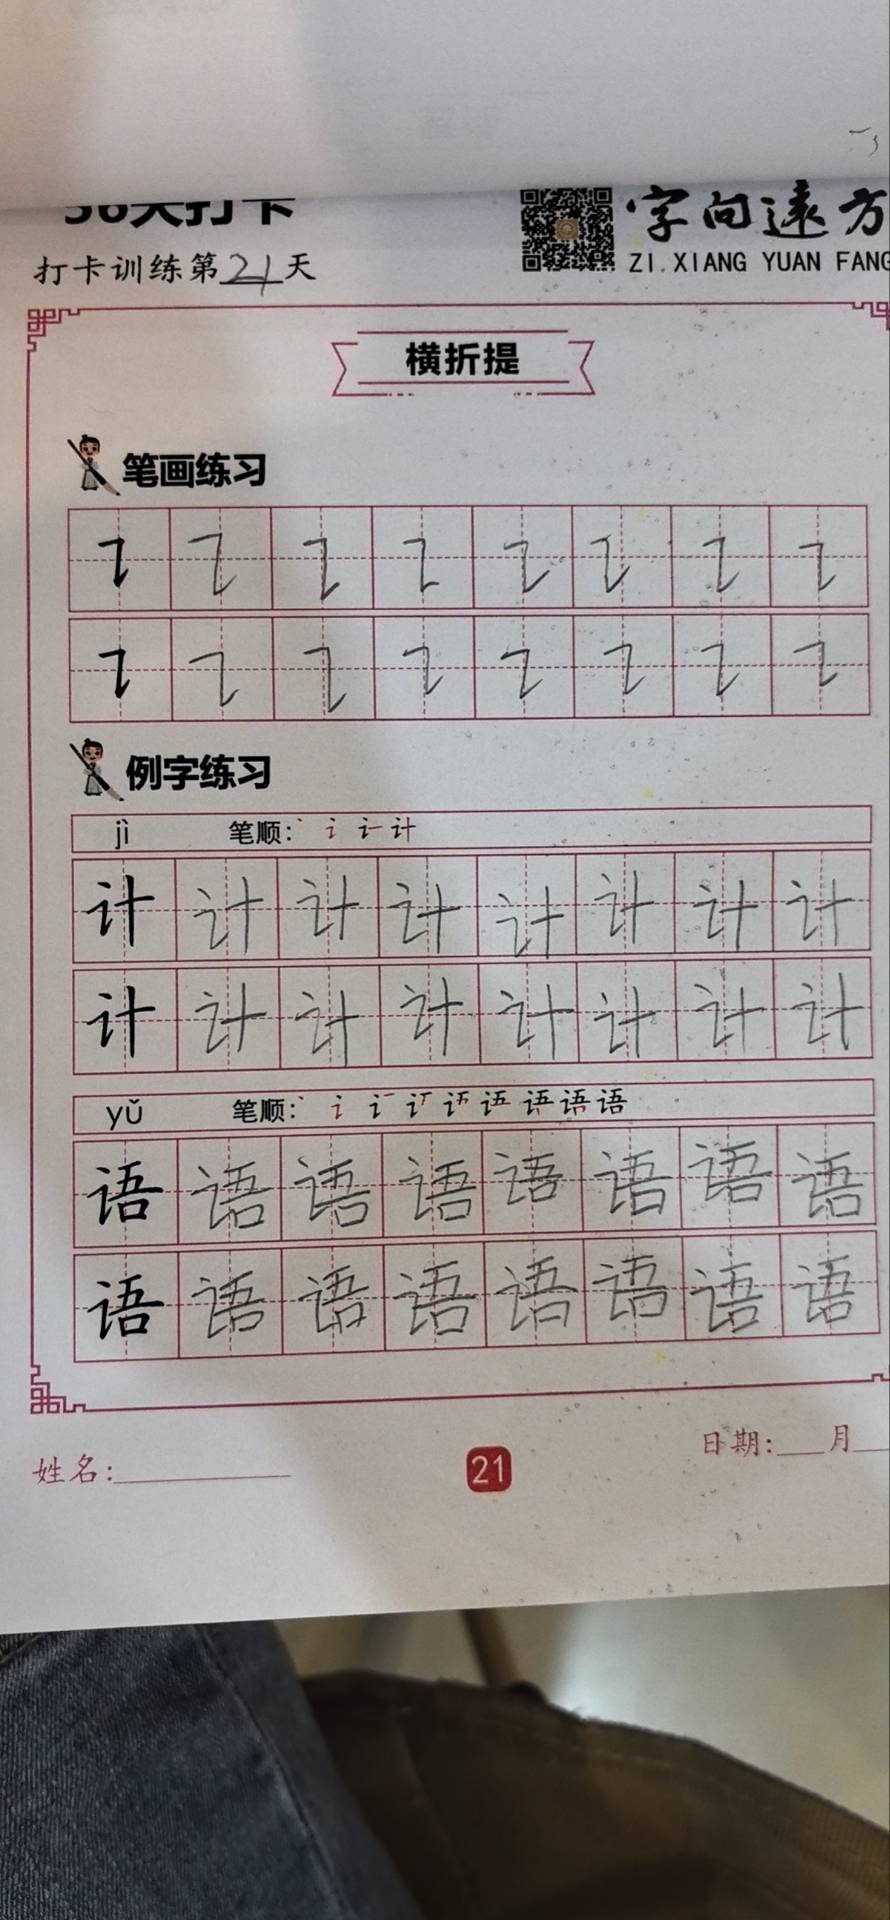 36天打卡
字向遠方
打卡训练第21天
ZI.XIANG YUAN FANG
横折提
笔画练习
例字练习
jì 笔顺:
计 计 计 计 计 计 计 计
计 计 计 计 计 计 计 计
yǔ 笔顺:
语 语 语 语 语 语 语 语
语 语 语 语 语 语 语 语
姓名:
21
日期:___月